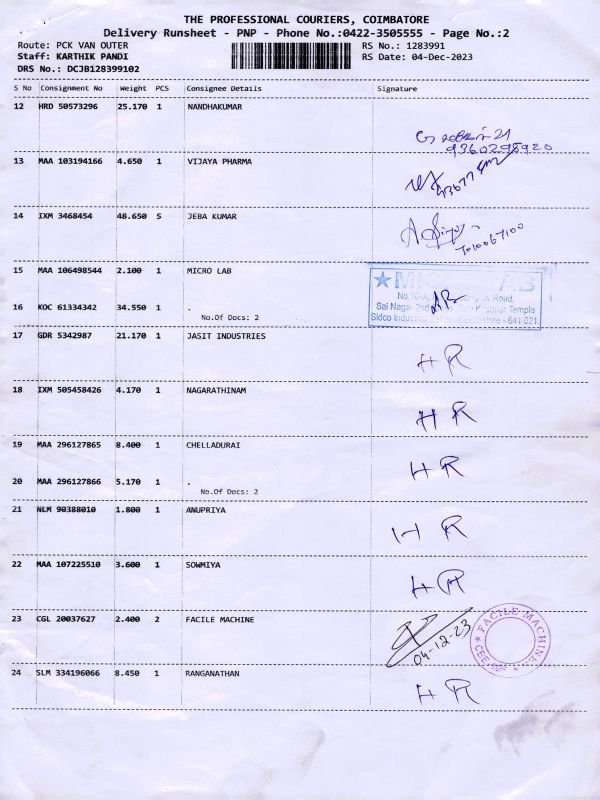 THE PROFESSIONAL COURIERS, COIMBATORE
Delivery Runsheet - PNP - Phone No.:0422-3505555 - Page No.:2
Route: PCK VAN OUTER RS No.: 1283991
Staff: KARTHIK PANDI RS Date: 04-Dec-2023
DRS No.: DCJB128399102
S No Consignment No Weight PCS Consignee Details Signature
12 HRD 50573296 25.170 1 NANDHAKUMAR
9360298920
13 MAA 103194166 4.650 1 VIJAYA PHARMA
14 IXM 3468454 48.650 5 JEBA KUMAR
15 MAA 106498544 2.100 1 MICRO LAB
16 KOC 61334342 34.550 1 .
No.Of Docs: 2
No.10-A, Road,
Sai Nagar 2nd Temple
Sidco - 641 021
17 GDR 5342987 21.170 1 JASIT INDUSTRIES
H R
18 IXM 505458426 4.170 1 NAGARATHINAM
H R
19 MAA 296127865 8.400 1 CHELLADURAI
H R
20 MAA 296127866 5.170 1 .
No.Of Docs: 2
21 NLM 90388010 1.800 1 ANUPRIYA
H R
22 MAA 107225510 3.600 1 SOWMIYA
H R
23 CGL 20037627 2.400 2 FACILE MACHINE
04-12-23
FACILE MACHINE
24 SLM 334196066 8.450 1 RANGANATHAN
H R